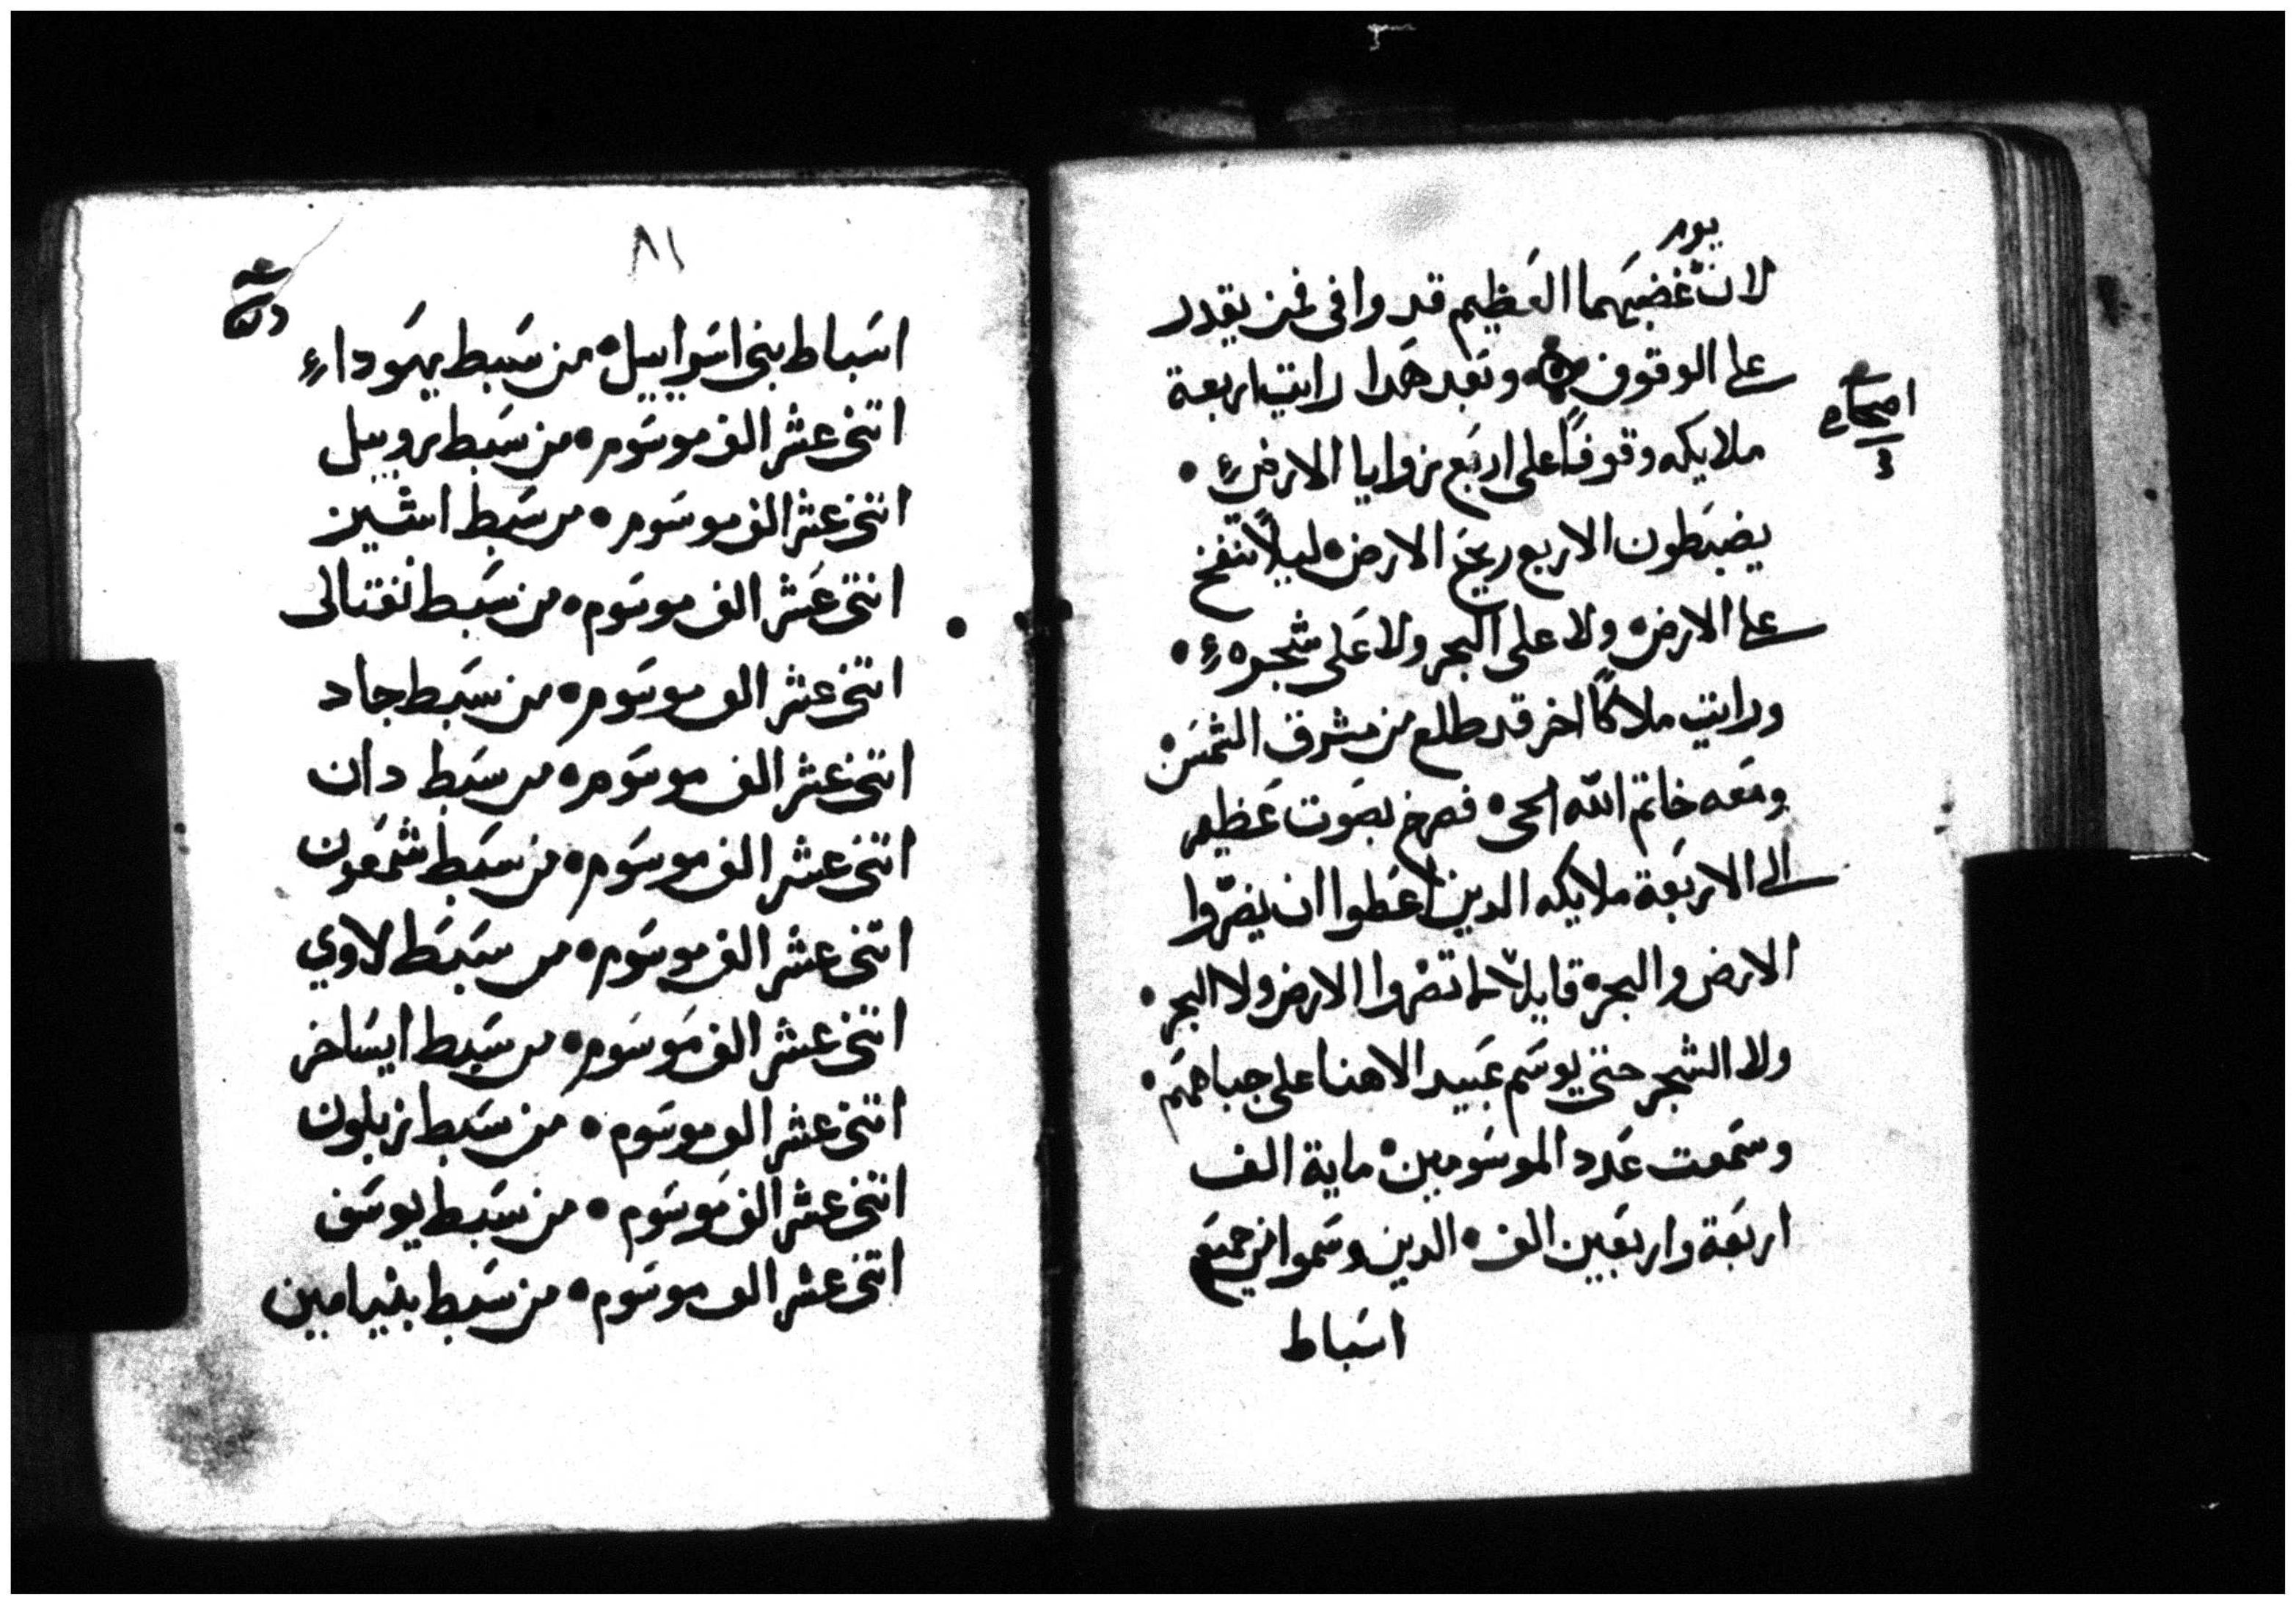 يوم
لان غضبهما العظيم قد وافى فمن يقدر
على الوقوف ۞ وبعد هدا رايت اربعة
اصحاح
ملايكه وقوفًا على اربع زوايا الارض •
يضبطون الاربع ريح الارض • ليلًا تنفخ
على الارض • ولا على البحر ولا على شجره •
ورايت ملاكًا اخر قد طلع من مشرق الشمس •
ومعه خاتم الله الحى • فصرخ بصوت عظيم
الى الاربعة ملايكه الدين اعطوا ان يضرّوا
الارض والبحر • قايلًا لا تضروا الارض ولا البحر •
ولا الشجر حتى يوسم عبيد الاهنا على جباههم •
وسمعت عدد الموسومين • ماية الف
اربعة واربعين الف • الدين وسموا من جميع
اسباط
٨١
اسباط بنى اسراييل • من سبط يهودا
اتنى عشر الف موسوم • من سبط روبيل
اتنى عشر الف موسوم • من سبط اشير
اتنى عشر الف موسوم • من سبط نفتالى
اتنى عشر الف موسوم • من سبط جاد
اتنى عشر الف موسوم • من سبط دان
اتنى عشر الف موسوم • من سبط شمعون
اتنى عشر الف موسوم • من سبط لاوي
اتنى عشر الف موسوم • من سبط ايساخر
اتنى عشر الف موسوم • من سبط زبلون
اتنى عشر الف موسوم • من سبط يوسف
اتنى عشر الف موسوم • من سبط بنيامين